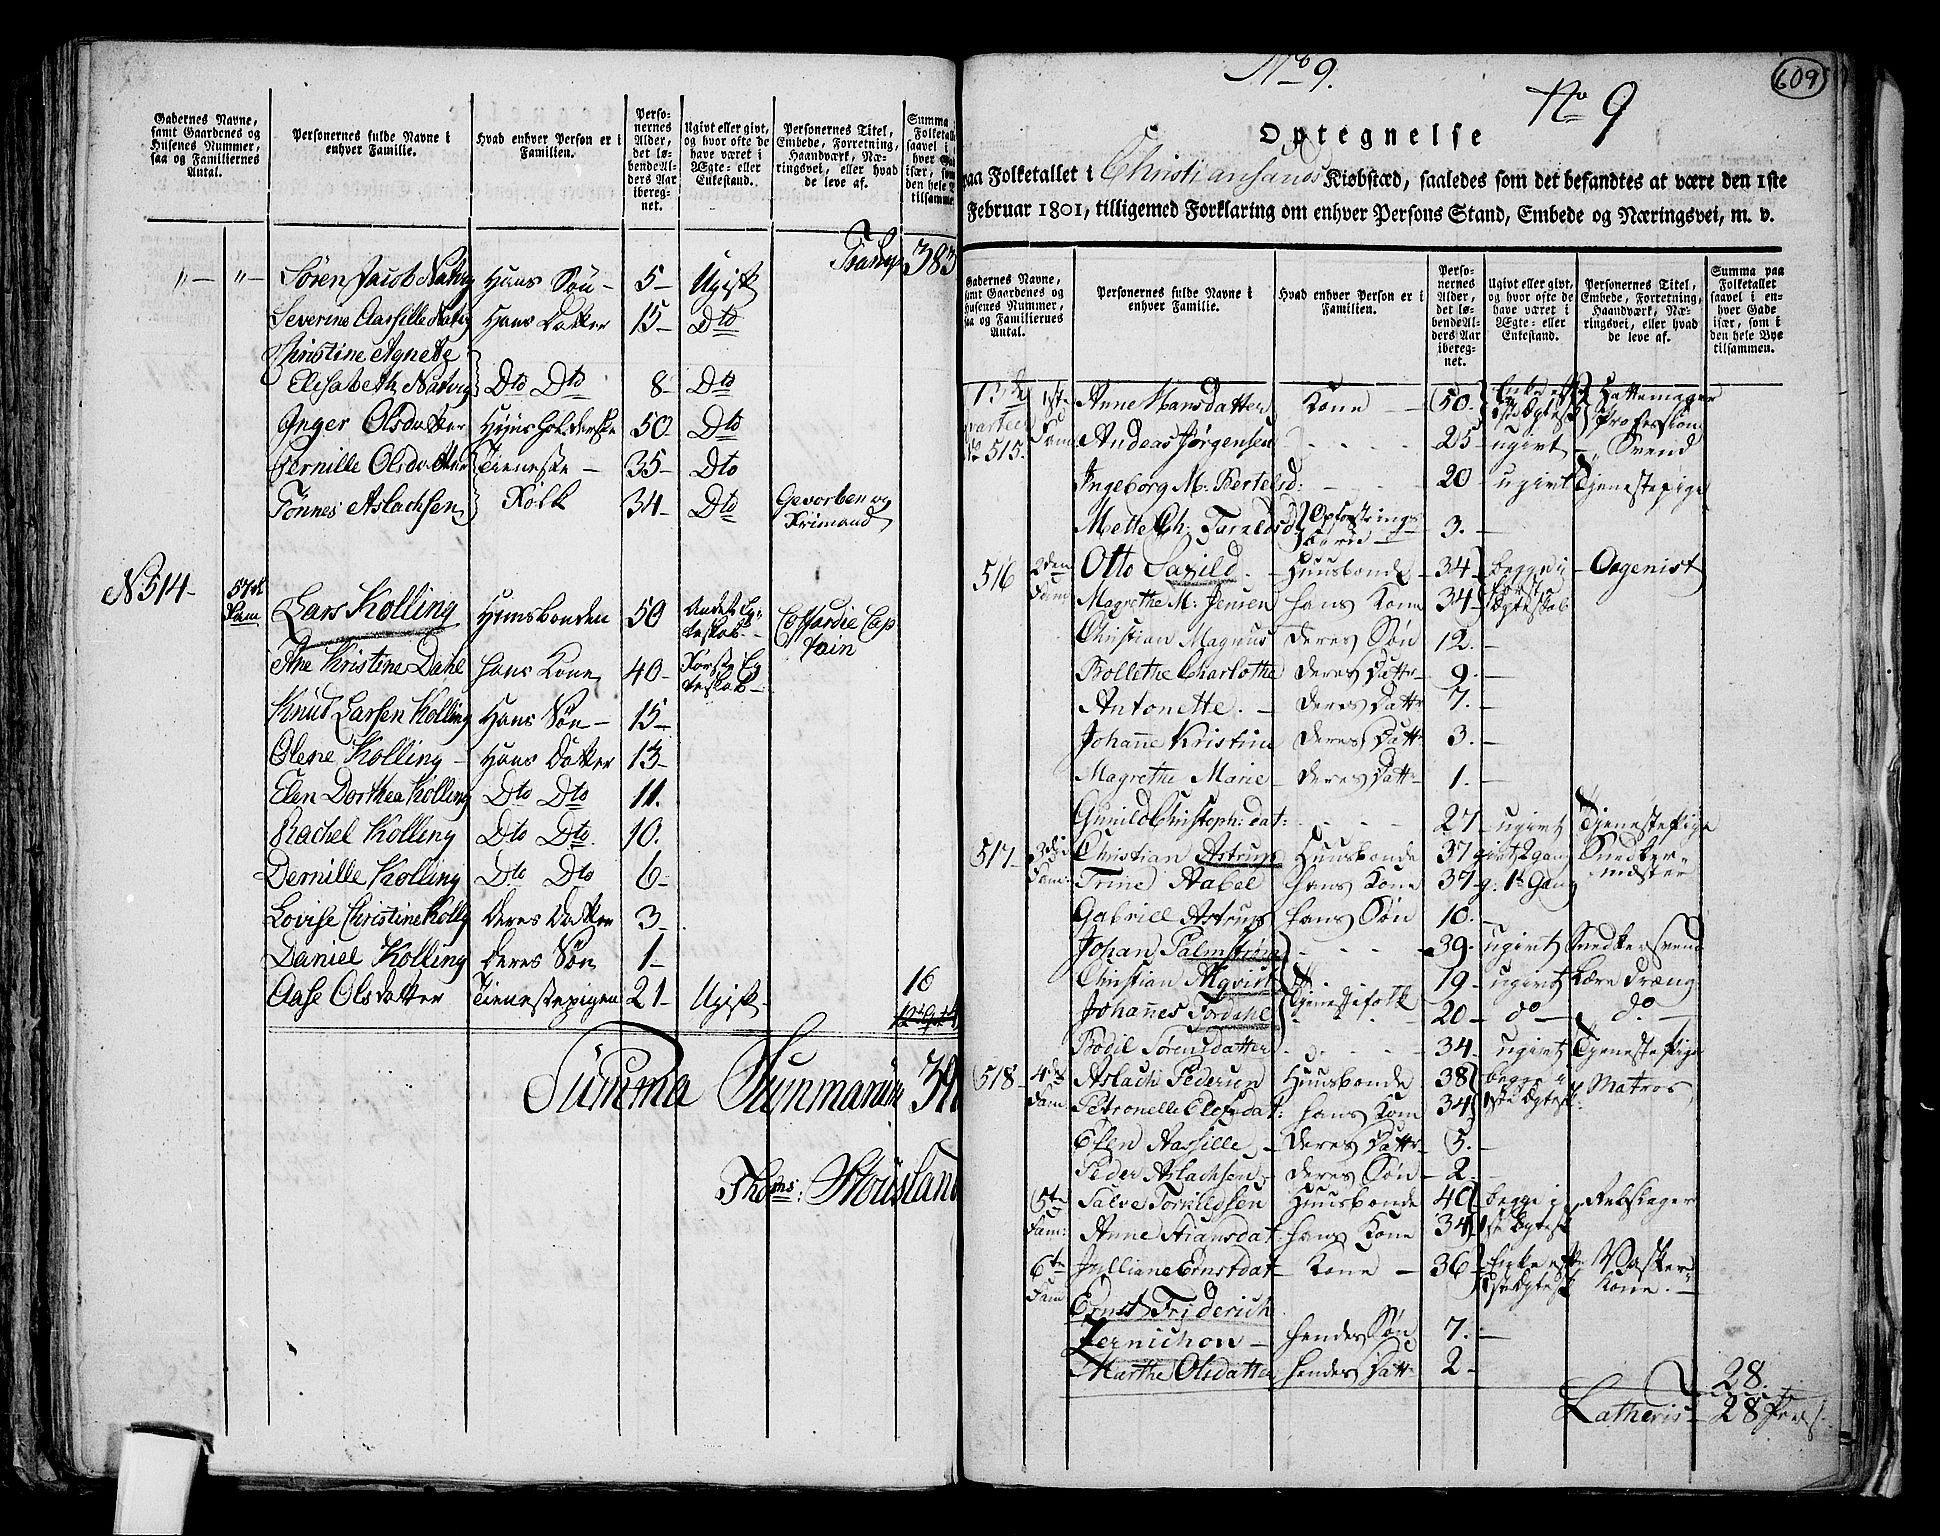 Gadernes Navne,
samt Gaardenes og
Husenes Nummer,
saa og Familiernes
Antal.
Personernes fulde Navne i
enhver Familie.
Hvad enhver Person er i
Familien.
Perso-
nernes
Alder,
det lø-
bende Al-
ders Aar
iberegnet.
Ugivt eller givt,
og hvor ofte de
have været i
Ægte- eller
Enkestand.
Personernes Titel,
Embede, Forretning,
Haandværk, Næ-
ringsvei, eller hvad
de leve af.
Summa
Folketall
saavel i
hver Gad
især, som
den hele B
tilsamme
Transp 383
"— "— Søren Jacob Natvig Hans Søn — 5 — Ugift
Severine Aassille Natvig Hans Datter 15 — Dto
Christine Agnete
Elisabeth Natvig Dto Dto 8 — Dto
Inger Olsdatter Huusholderske 50 — Dto
Pernille Olsdatter Tieneste — 35 — Dto
Tønnes Aslachsen Folk 34 — Dto Gevorben og
Friemand
No 514 — 57de Fam Lars Kolling Huusbonden 50 Andet Eg-
teskab — Coffardie Cap
tain
Ane Kristine Dahl Hans Kone 40 — Første Eg
teskab —
Knud Larsen Kolling Hans Søn — 15 —
Olene Kolling — Hans Datter 13 —
Elen Dorthea Kolling Dto Dto 11.
Rachel Kolling Dto Dto 10.
Pernille Kolling Dto Dto 6 —
Lovise Christine Kollg Deres Datter 3 —
Daniel Kolling Deres Søn 1 —
Aase Olsdatter Tienestepigen 21 — Ugift — 16
Summa Summarum 39
Thoms: Housland
609
No 9.
No 9
Optegnelse
paa Folketallet i Christiansands Kiøbstæd, saaledes som det befandtes at være den 1ste
Februar 1801, tilligemed Forklaring om enhver Persons Stand, Embede og Næringsvei, m. v.
Gadernes Navne,
samt Gaardenes og
Husenes Nummer,
saa og Familiernes
Antal.
Personernes fulde Navne i
enhver Familie.
Hvad enhver Person er i
Familien.
Perso-
nernes
Alder,
det lø-
bende Al-
ders Aar
iberegnet.
Ugivt eller givt,
og hvor ofte de
have været i
Ægte- eller
Enkestand.
Personernes Titel,
Embede, Forretning,
Haandværk, Næ-
ringsvei, eller hvad
de leve af.
Summa paa
Folketallet
saavel i en-
hver Gade
især, som i
den hele Bye
tilsammen.
13de 1ste Anne Hansdatter Kone — 50. Enke Hattemager
qvarteer Fam 1ste Ægtesk Profession
No 515. Andeas Jørgensen 25 — ugivt — Svend
Ingeborg M: Bertelsd: 20 ugivt Tjenestepige
Mette Ch: Taraldsd Opfostrings 3. —
516 2den Fam Otto Saxild. Huusbonde 34 begge i — Orgenist
Magrethe M: Jensen hans Kone 34 første Ægteskab
Christian Magnus deres Søn 12. —
Bollethe Charlothe deres Datt — 9. —
Antonette. — deres Datt 7. —
Johanne Kristine deres Datt 3. —
Magrethe Marie deres Datt — 1. —
Gunild Christoph: dat: 27 — ugivt Tjenestepige
517 — 3die Fam: Christian Astrup Huusbonde 37 givt 2 gang Snedker-
Trine Aabel hans Kone 37 g. 1te Gang mester
Gabriel Astrup hans Søn 10. —
Johan Palmstrøm 39. ugivt Snedkersvend
Christian Mqvist 19 — ugivt Lære dræng
Johannes Fordahl Tjenestefolk 20 — do — do —
Bodil Sørensdatter 34 — ugivt Tjenestepige
518 — 4de Fam Aslach Pedersen Huusbonde 38 begge i Matros
Petronelle Olofsdat: hans Kone 34 1ste Ægtesk:
Elen Aassille — deres Datt — 5. —
Peder Aslachsen, deres Søn 2 —
5te Fam: Salve Torkildsen Huusbonde 40 begge i Rebslager
Anne Hansdat: hans Kone 34 1ste Ægtesk
6te Fam Jylliane Ernstdat — Kone — 36 — Enke efter Vasker-
1ste Ægtesk Kone. —
Ernst Friderich
Zernichon — hendes Søn 7. —
Marthe Olsdatter hendes Datt: 2 —
28.
Latheris — 28 Pers.